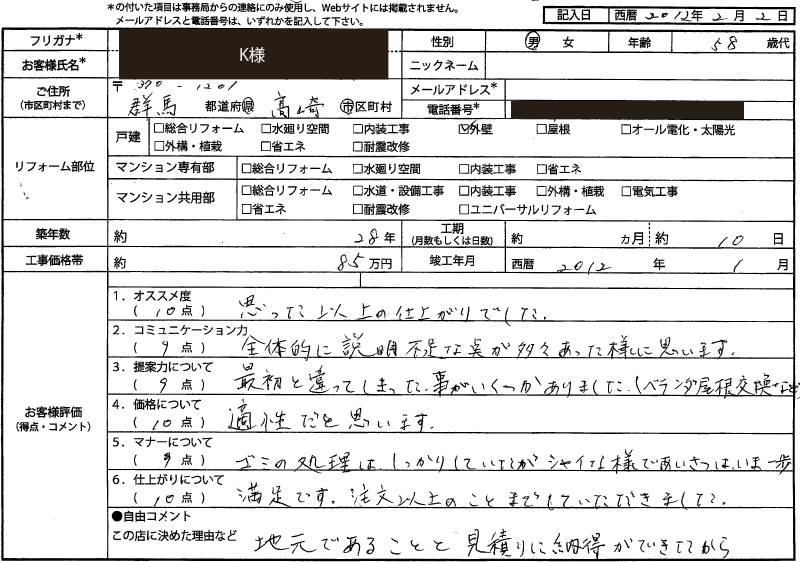 *の付いた項目は事務局からの連絡にのみ使用し、Webサイトには掲載されません。
メールアドレスと電話番号は、いずれかを記入して下さい。
記入日 西暦 2012年 2月 2日
フリガナ* K様 性別 男 女 年齢 58 歳代
お客様氏名* ニックネーム
ご住所 (市区町村まで) 〒370-1201 メールアドレス*
群馬 都道府県 高崎 市区町村 電話番号*
リフォーム部位
戸建 □総合リフォーム □水廻り空間 □内装工事 ☑外壁 □屋根 □オール電化・太陽光
□外構・植栽 □省エネ □耐震改修
マンション専有部 □総合リフォーム □水廻り空間 □内装工事 □省エネ
マンション共用部 □総合リフォーム □水道・設備工事 □内装工事 □外構・植栽 □電気工事
□省エネ □耐震改修 □ユニバーサルリフォーム
築年数 約 28年 工期 (月数もしくは日数) 約 カ月 約 10 日
工事価格帯 約 85万円 竣工年月 西暦 2012 年 1 月
お客様評価 (得点・コメント)
1．オススメ度
(10点) 思った以上の仕上がりでした.
2．コミュニケーション力
(9点) 全体的に説明不足な点が多々あった様に思います.
3．提案力について
(9点) 最初と違ってしまった事がいくつかありました.(ベランダ屋根交換など)
4．価格について
(10点) 適性だと思います.
5．マナーについて
(9点) ゴミの処理は、しっかりしていたがシャイな様であいさつは、いま一歩
6．仕上がりについて
(10点) 満足です. 注文以上のことまでしていただきました.
●自由コメント
この店に決めた理由など 地元であることと見積りに納得ができたから